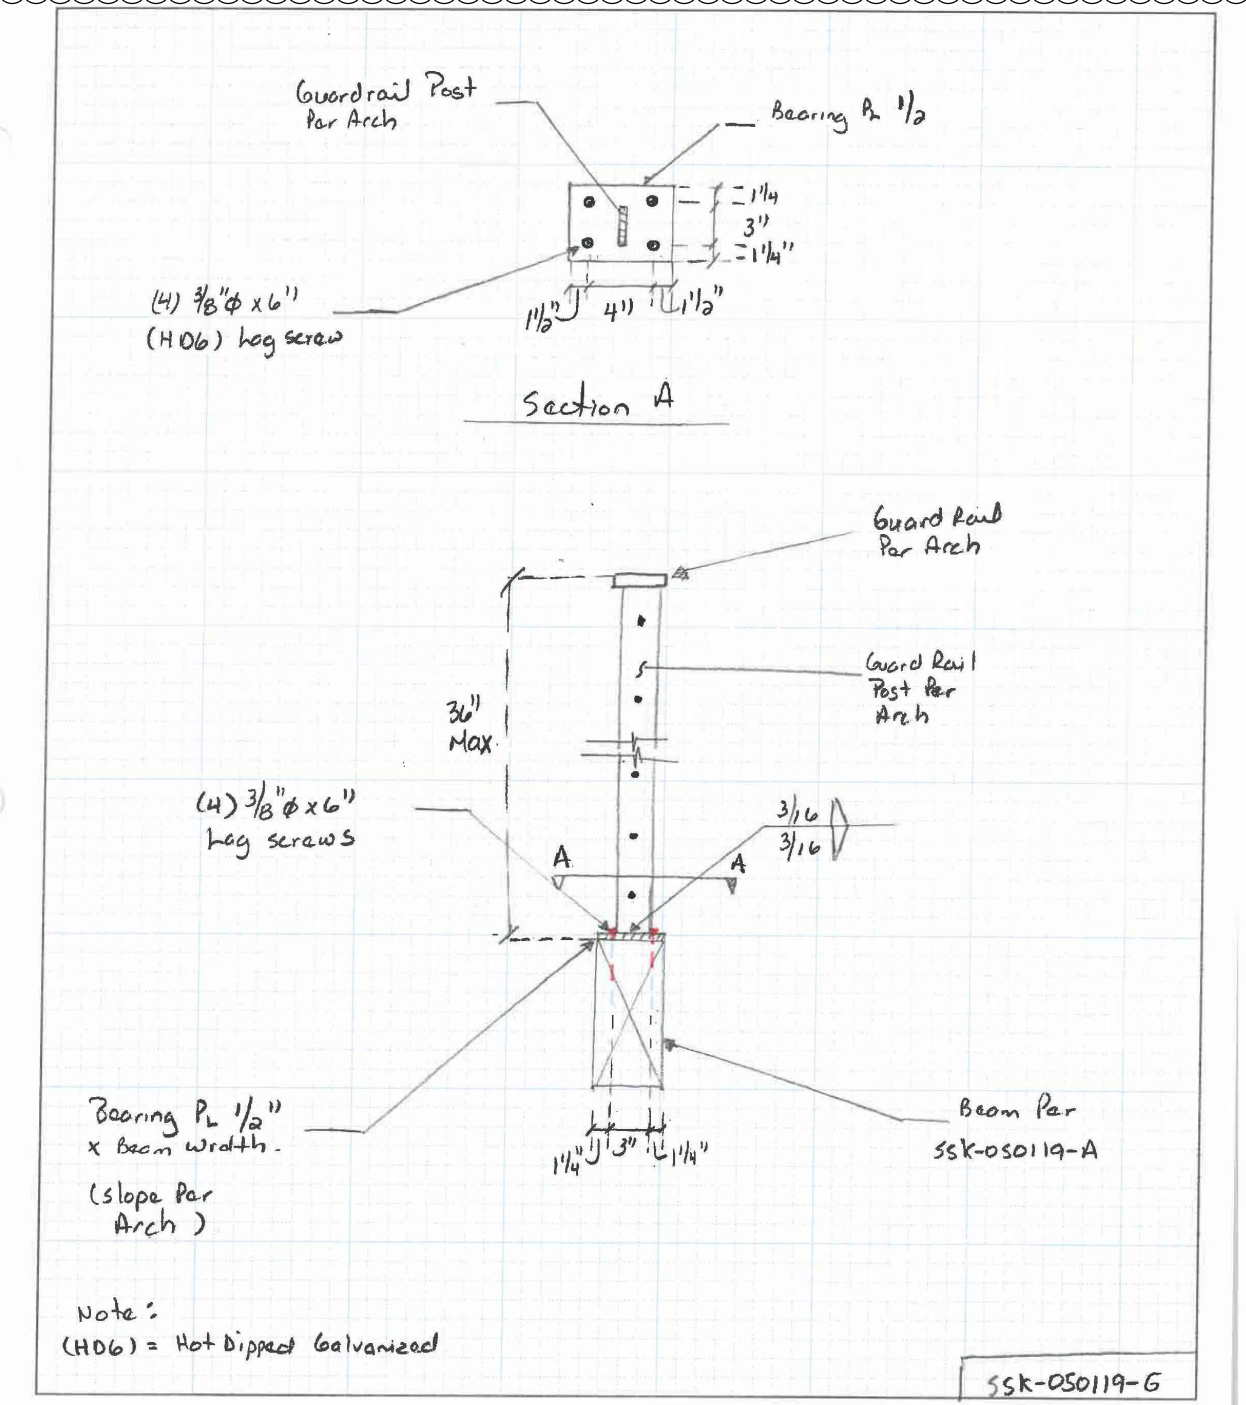 Guardrail Post
Per Arch
Bearing PL 1/2
1 1/4
3"
1 1/4"
(4) 3/8"ϕ x 6"
(HDG) Lag screw
1 1/2"
4"
1 1/2"
Section A
Guard Rail
Per Arch
Guard Rail
Post Per
Arch
36"
Max
(4) 3/8"ϕ x 6"
Lag screws
3/16
3/16
A
A
Bearing PL 1/2"
x Beam Width.
(Slope Per
Arch)
1 1/4"
3"
1 1/4"
Beam Per
SSK-050119-A
Note:
(HDG) = Hot Dipped Galvanized
SSK-050119-G